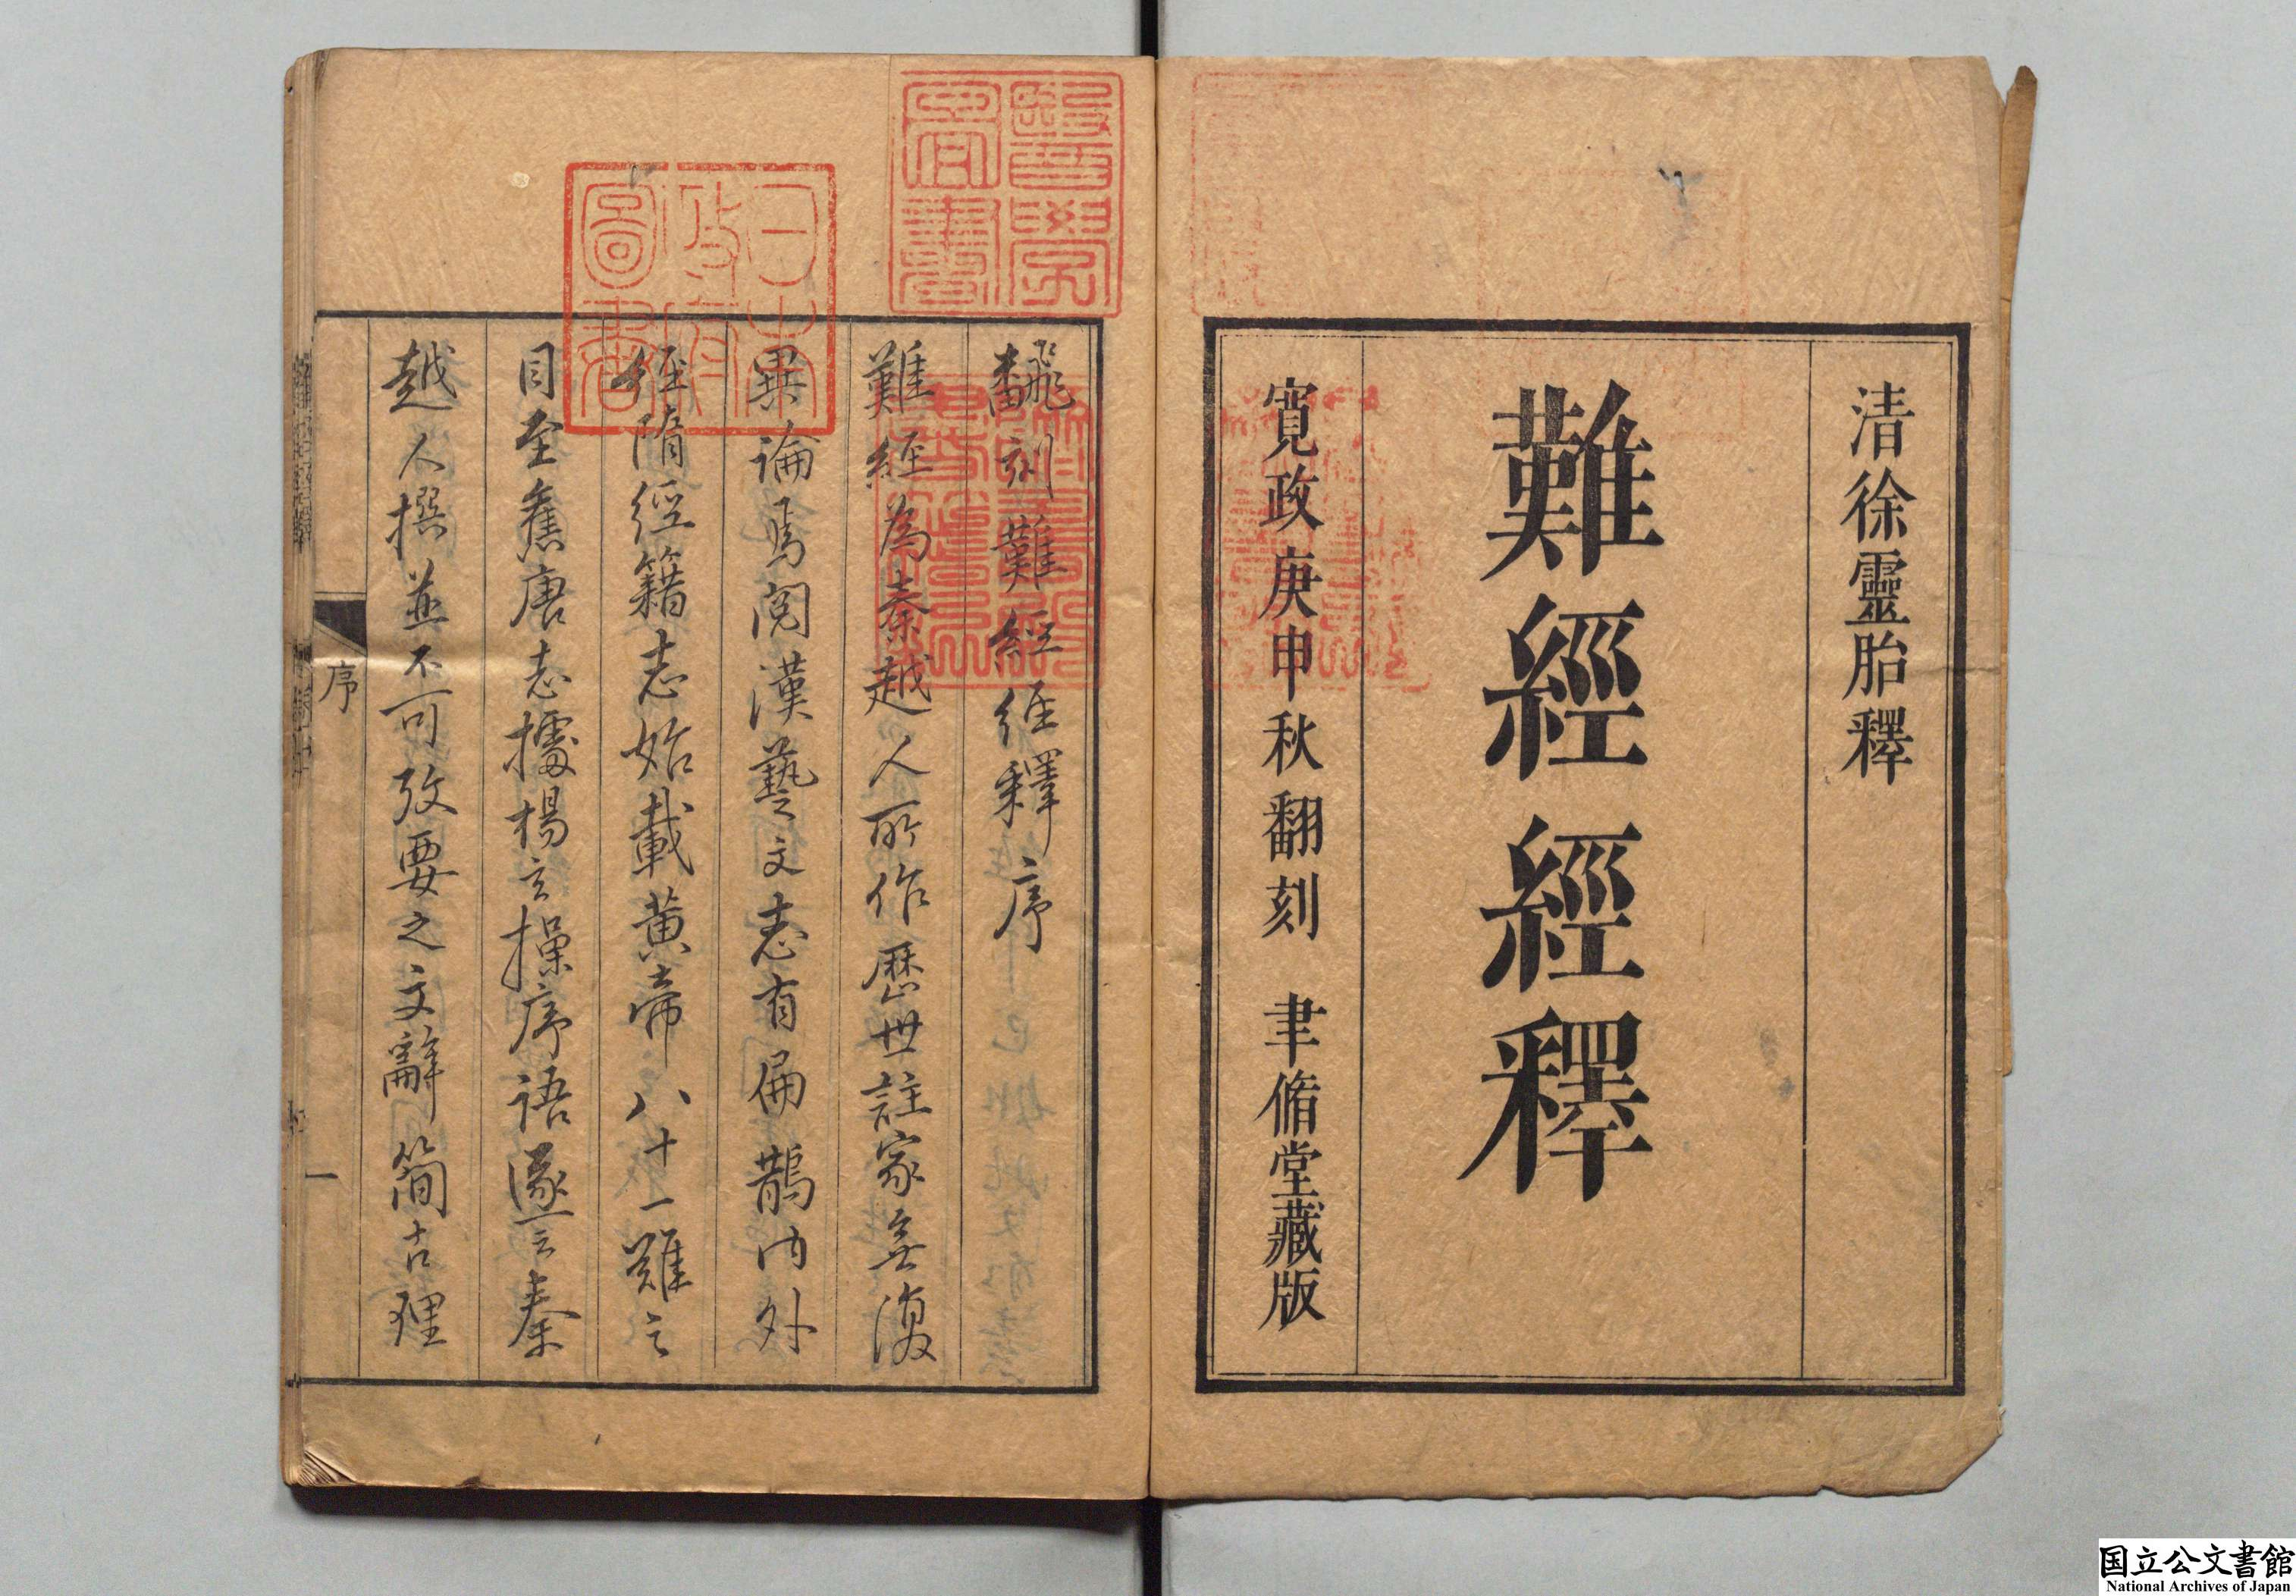 清徐靈胎釋
難經經釋
寛政庚申秋翻刻　聿脩堂藏版
醫學
圖書
日本
政府
圖書
飜刻難經經釋序
難經為秦越人所作歷世註家無復
異論焉閱漢藝文志有扁鵲內外
經隋經籍志始載黃帝八十一難之
目至舊唐志據楊玄操序語遂云秦
越人撰並不可攷要之文辭簡古理
序
一
国立公文書館
National Archives of Japan